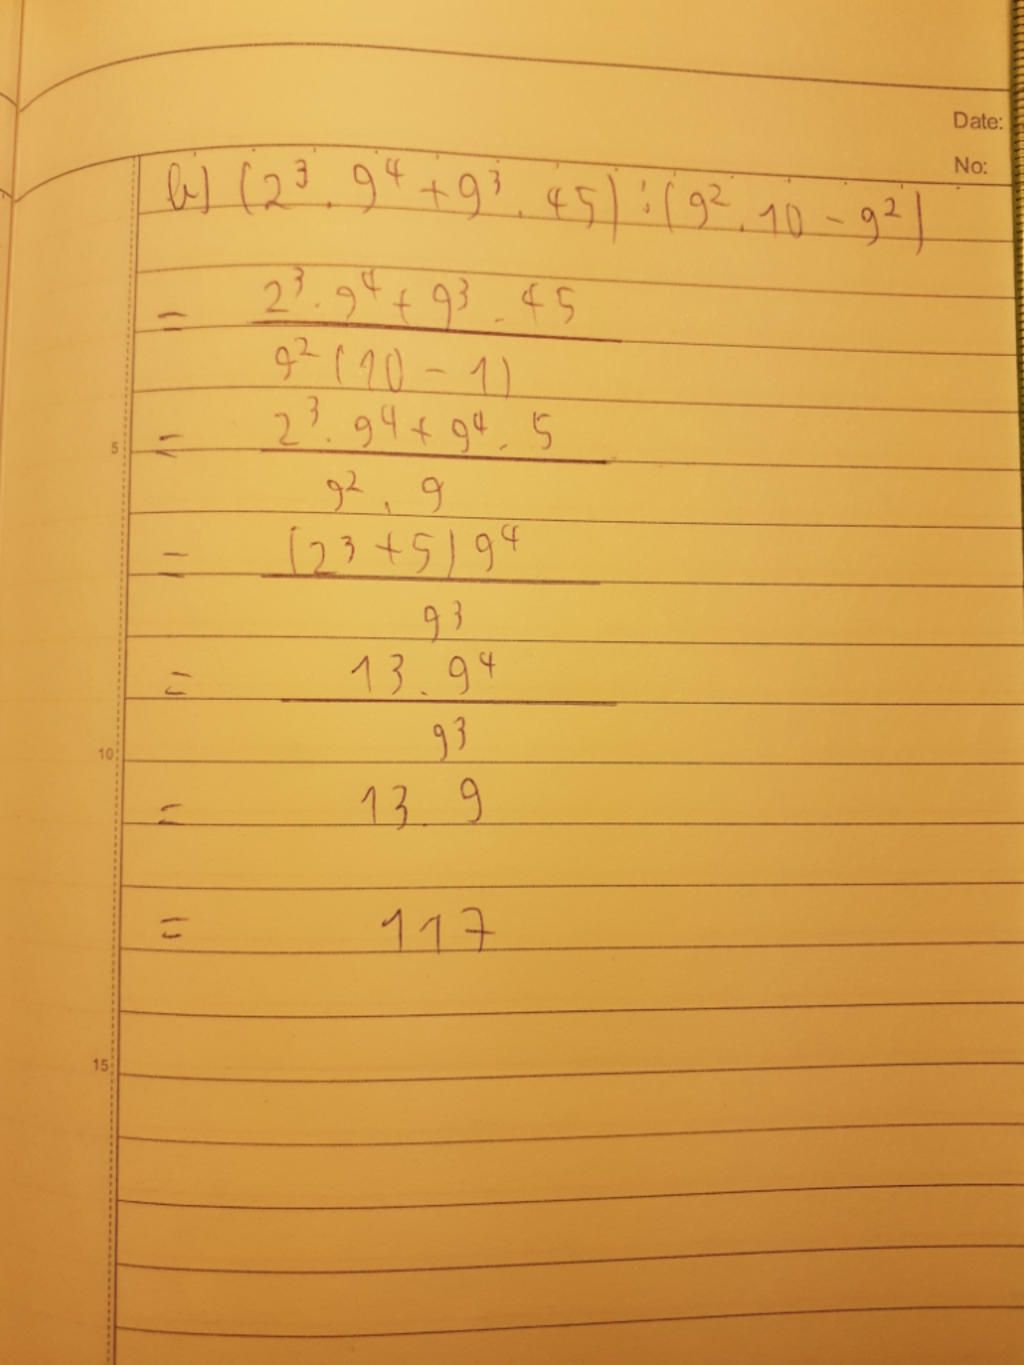 Date:
No:
b) (2³ . 9⁴ + 9³ . 45) : (9² . 10 - 9²)
= 2³ . 9⁴ + 9³ . 45
9² (10 - 1)
5
= 2³ . 9⁴ + 9⁴ . 5
9² . 9
= (2³ + 5) 9⁴
9³
= 13 . 9⁴
10
9³
= 13 . 9
= 117
15